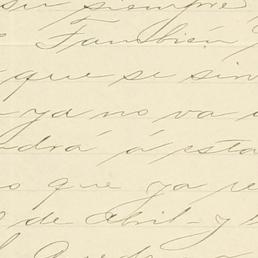 su siempre
Tambien
que se sir
ya no va
drá á esta
o que ya pe
de abril - y